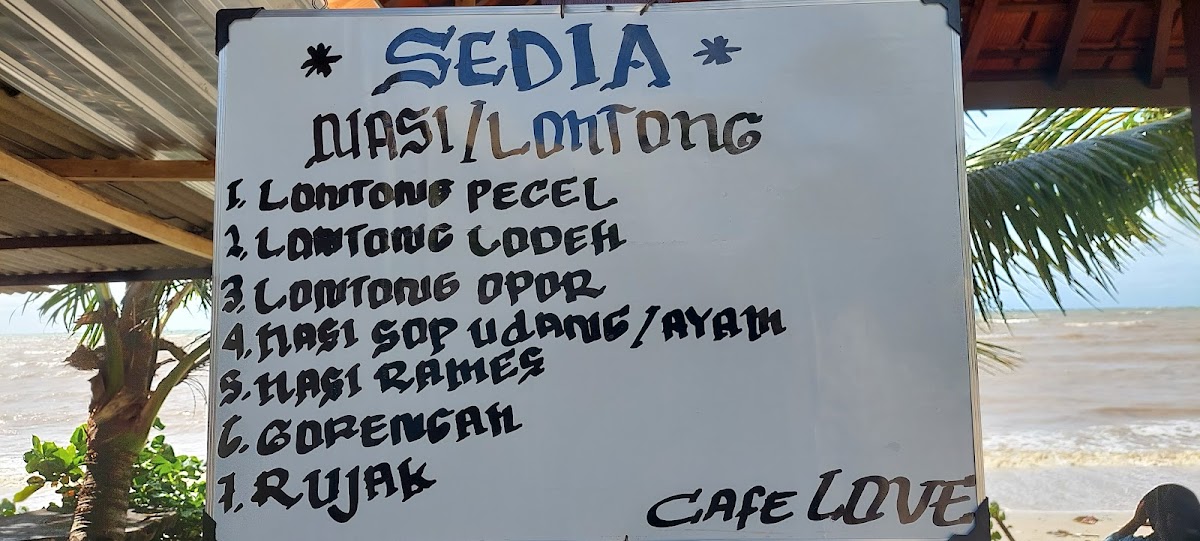 * SEDIA *
NASI/LONTONG
1. LONTONG PECEL
2. LONTONG LODEH
3. LONTONG OPOR
4. NASI SOP UdANG/AYAM
5. NASI RAMES
6. GORENGAN
7. RUJAK
CAFE LOVE